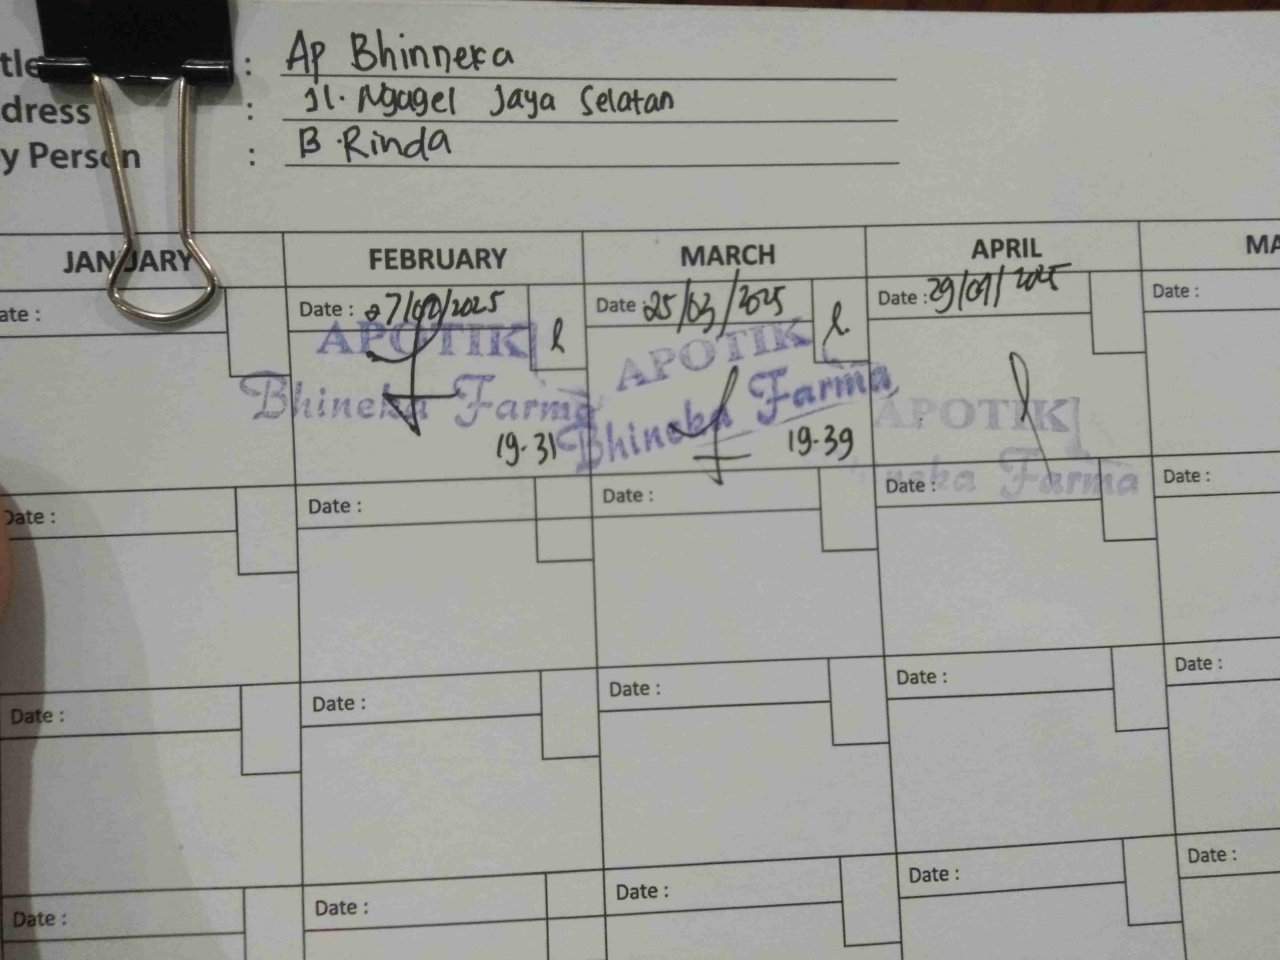 tle : Ap Bhinneka
dress : Jl. Ngagel Jaya Selatan
y Person : B. Rinda
JANUARY FEBRUARY MARCH APRIL MA
ate : Date : 27/02/2025 Date : 25/03/2025 Date : 29/04/2025 Date :
APOTIK APOTIK APOTIK
Bhineka Farma Bhineka Farma neka Farma
19.31 19.39
Date : Date : Date : Date : Date :
Date : Date : Date : Date : Date :
Date : Date : Date : Date : Date :